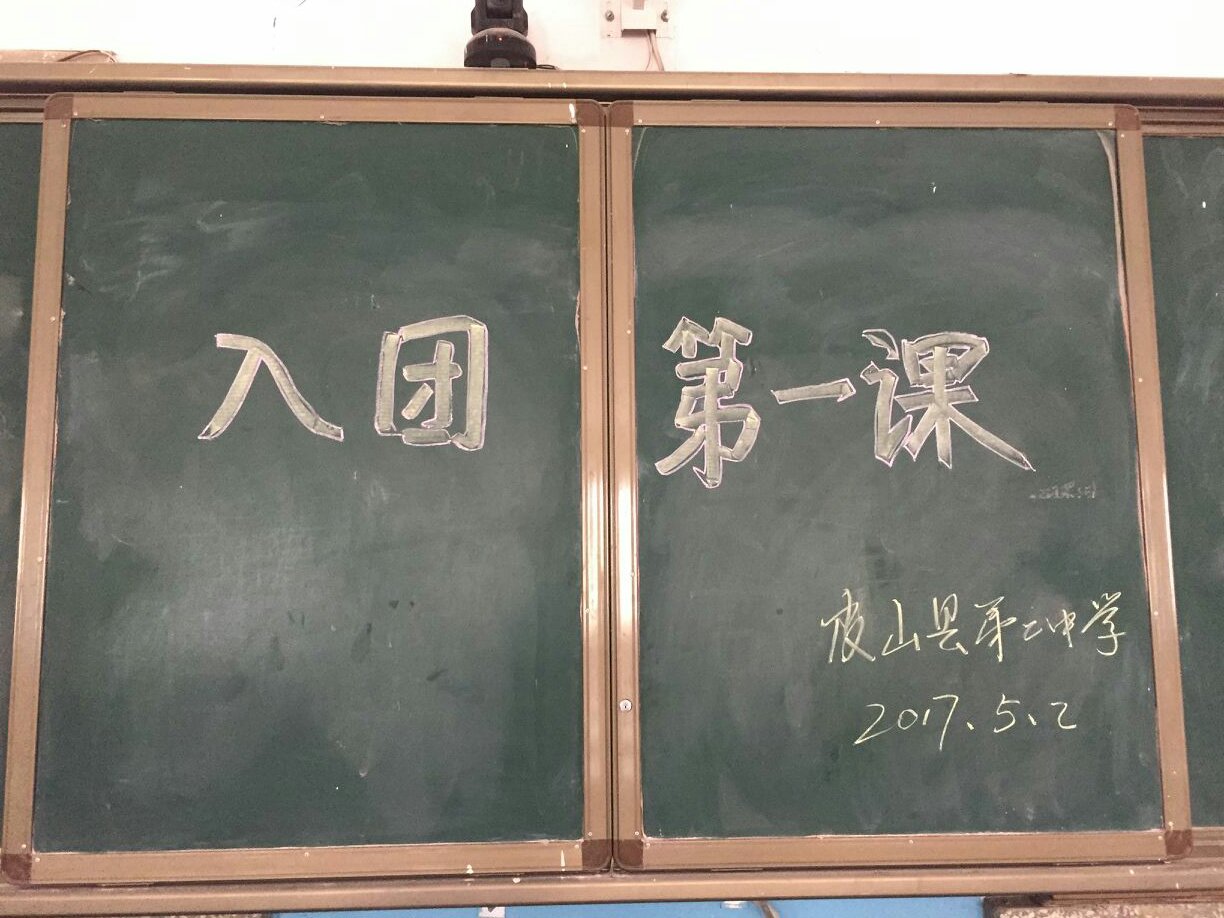 入团第一课
皮山县第二中学
2017.5.2